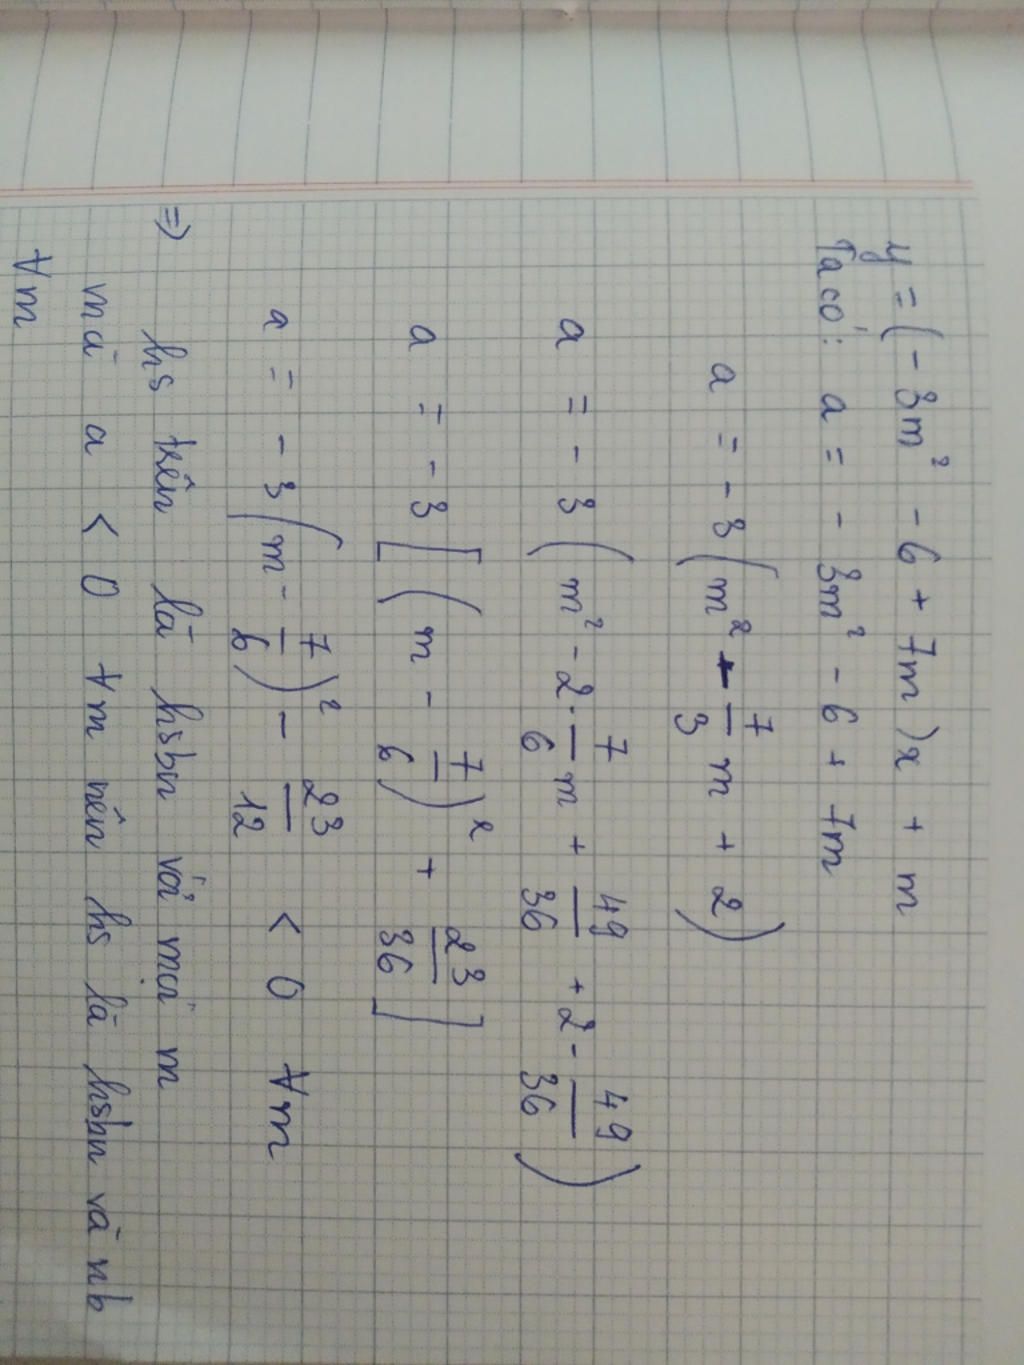 y = (-3m² - 6 + 7m)x + m
Ta có: a = -3m² - 6 + 7m
a = -3(m² - 7/3 m + 2)
a = -3(m² - 2·7/6 m + 49/36 + 2 - 49/36)
a = -3[(m - 7/6)² + 23/36]
a = -3(m - 7/6)² - 23/12 < 0 ∀m
⇒ hs trên là hsbn với mọi m
mà a < 0 ∀m nên hs là hsbn và nb
∀m